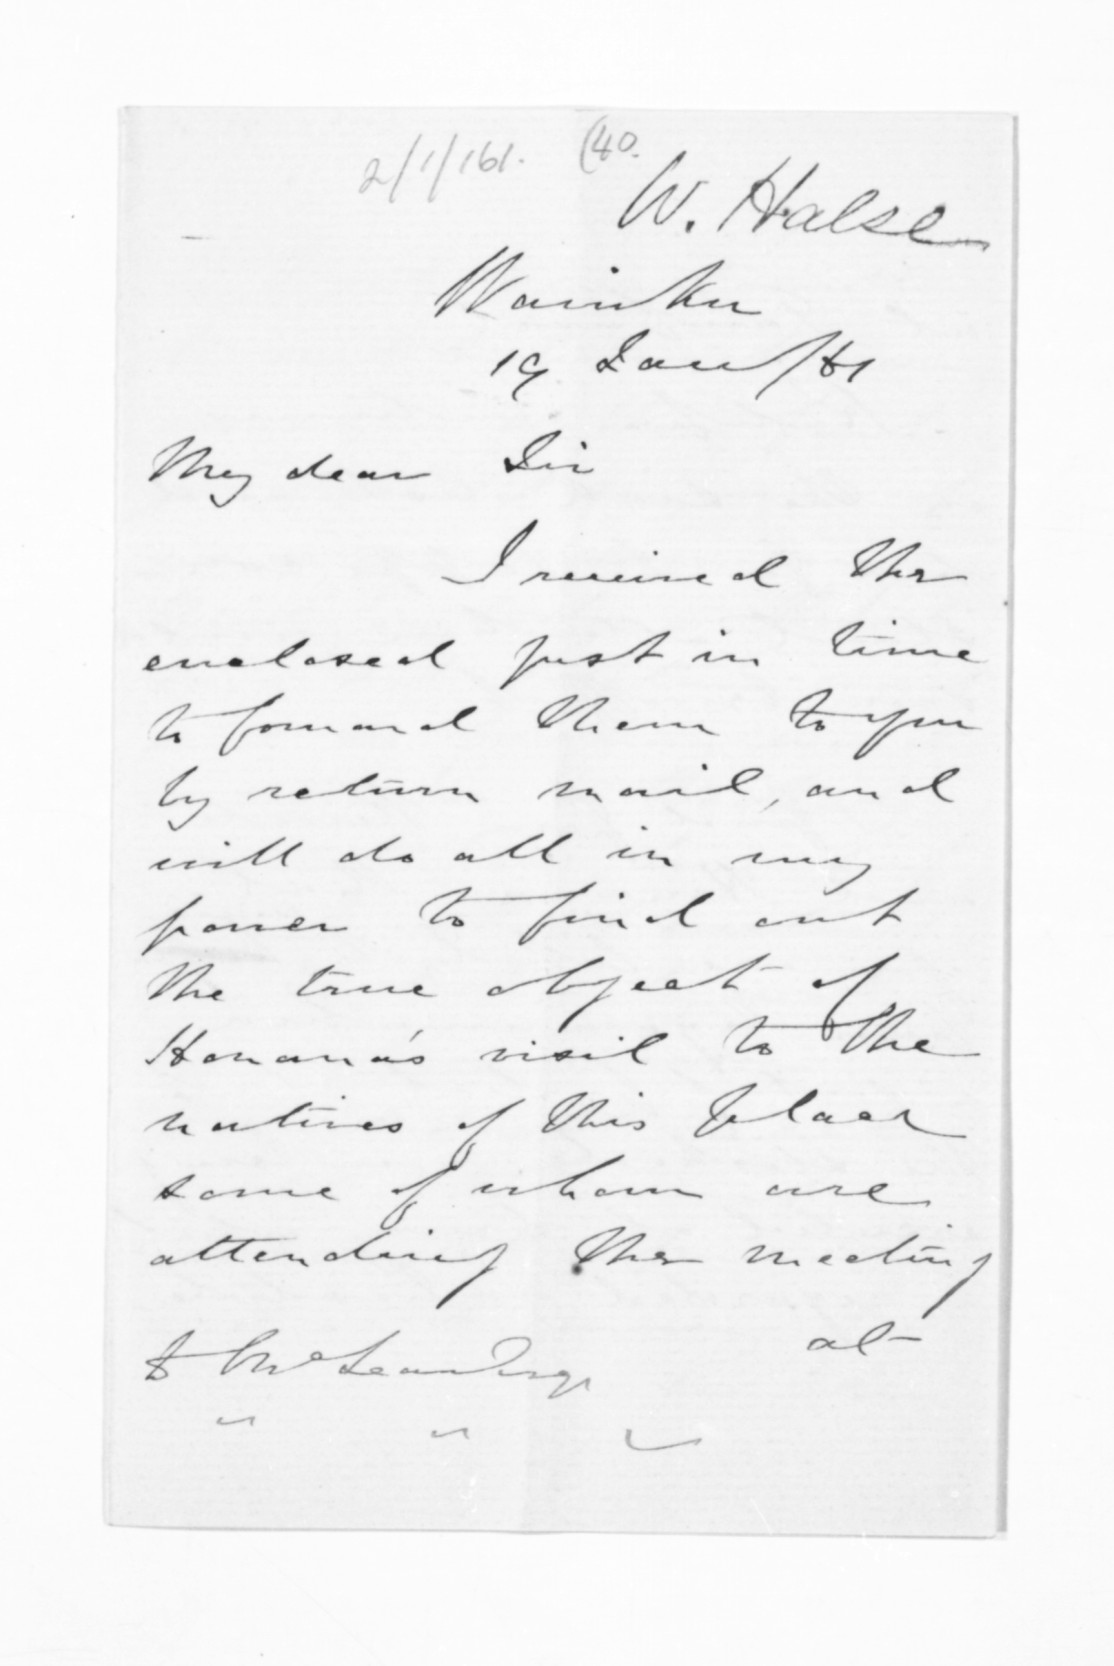 2/1/161. (40.
W. Halse
Waiuku
19 Jan/61
My dear Sir
I received the
enclosed just in time
to forward them to you
by return mail, and
will do all in my
power to find out
the true object of
visit to the
natives of this place
some of whom are
attending the meeting
at
D McLean Esqr
" " "